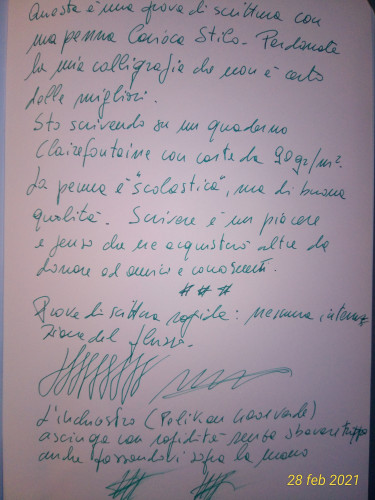 Questa è una prova di scrittura con
una penna Carioca Stilo. Perdonate
la mia calligrafia che non è certo
delle migliori.
Sto scrivendo su un quaderno
Clairefontaine con carta da 90 gr/m².
La penna è "scolastica", ma di buona
qualità. Scrivere è un piacere
e penso che ne acquisterò altre da
donare ad amici e conoscenti.
# # #
Prove di scrittura rapida: nessuna interru-
zione del flusso.
L'inchiostro (Pelikan verde)
asciuga con rapidità senza sbavare troppo
anche passandovi sopra la mano
# #
28 feb 2021